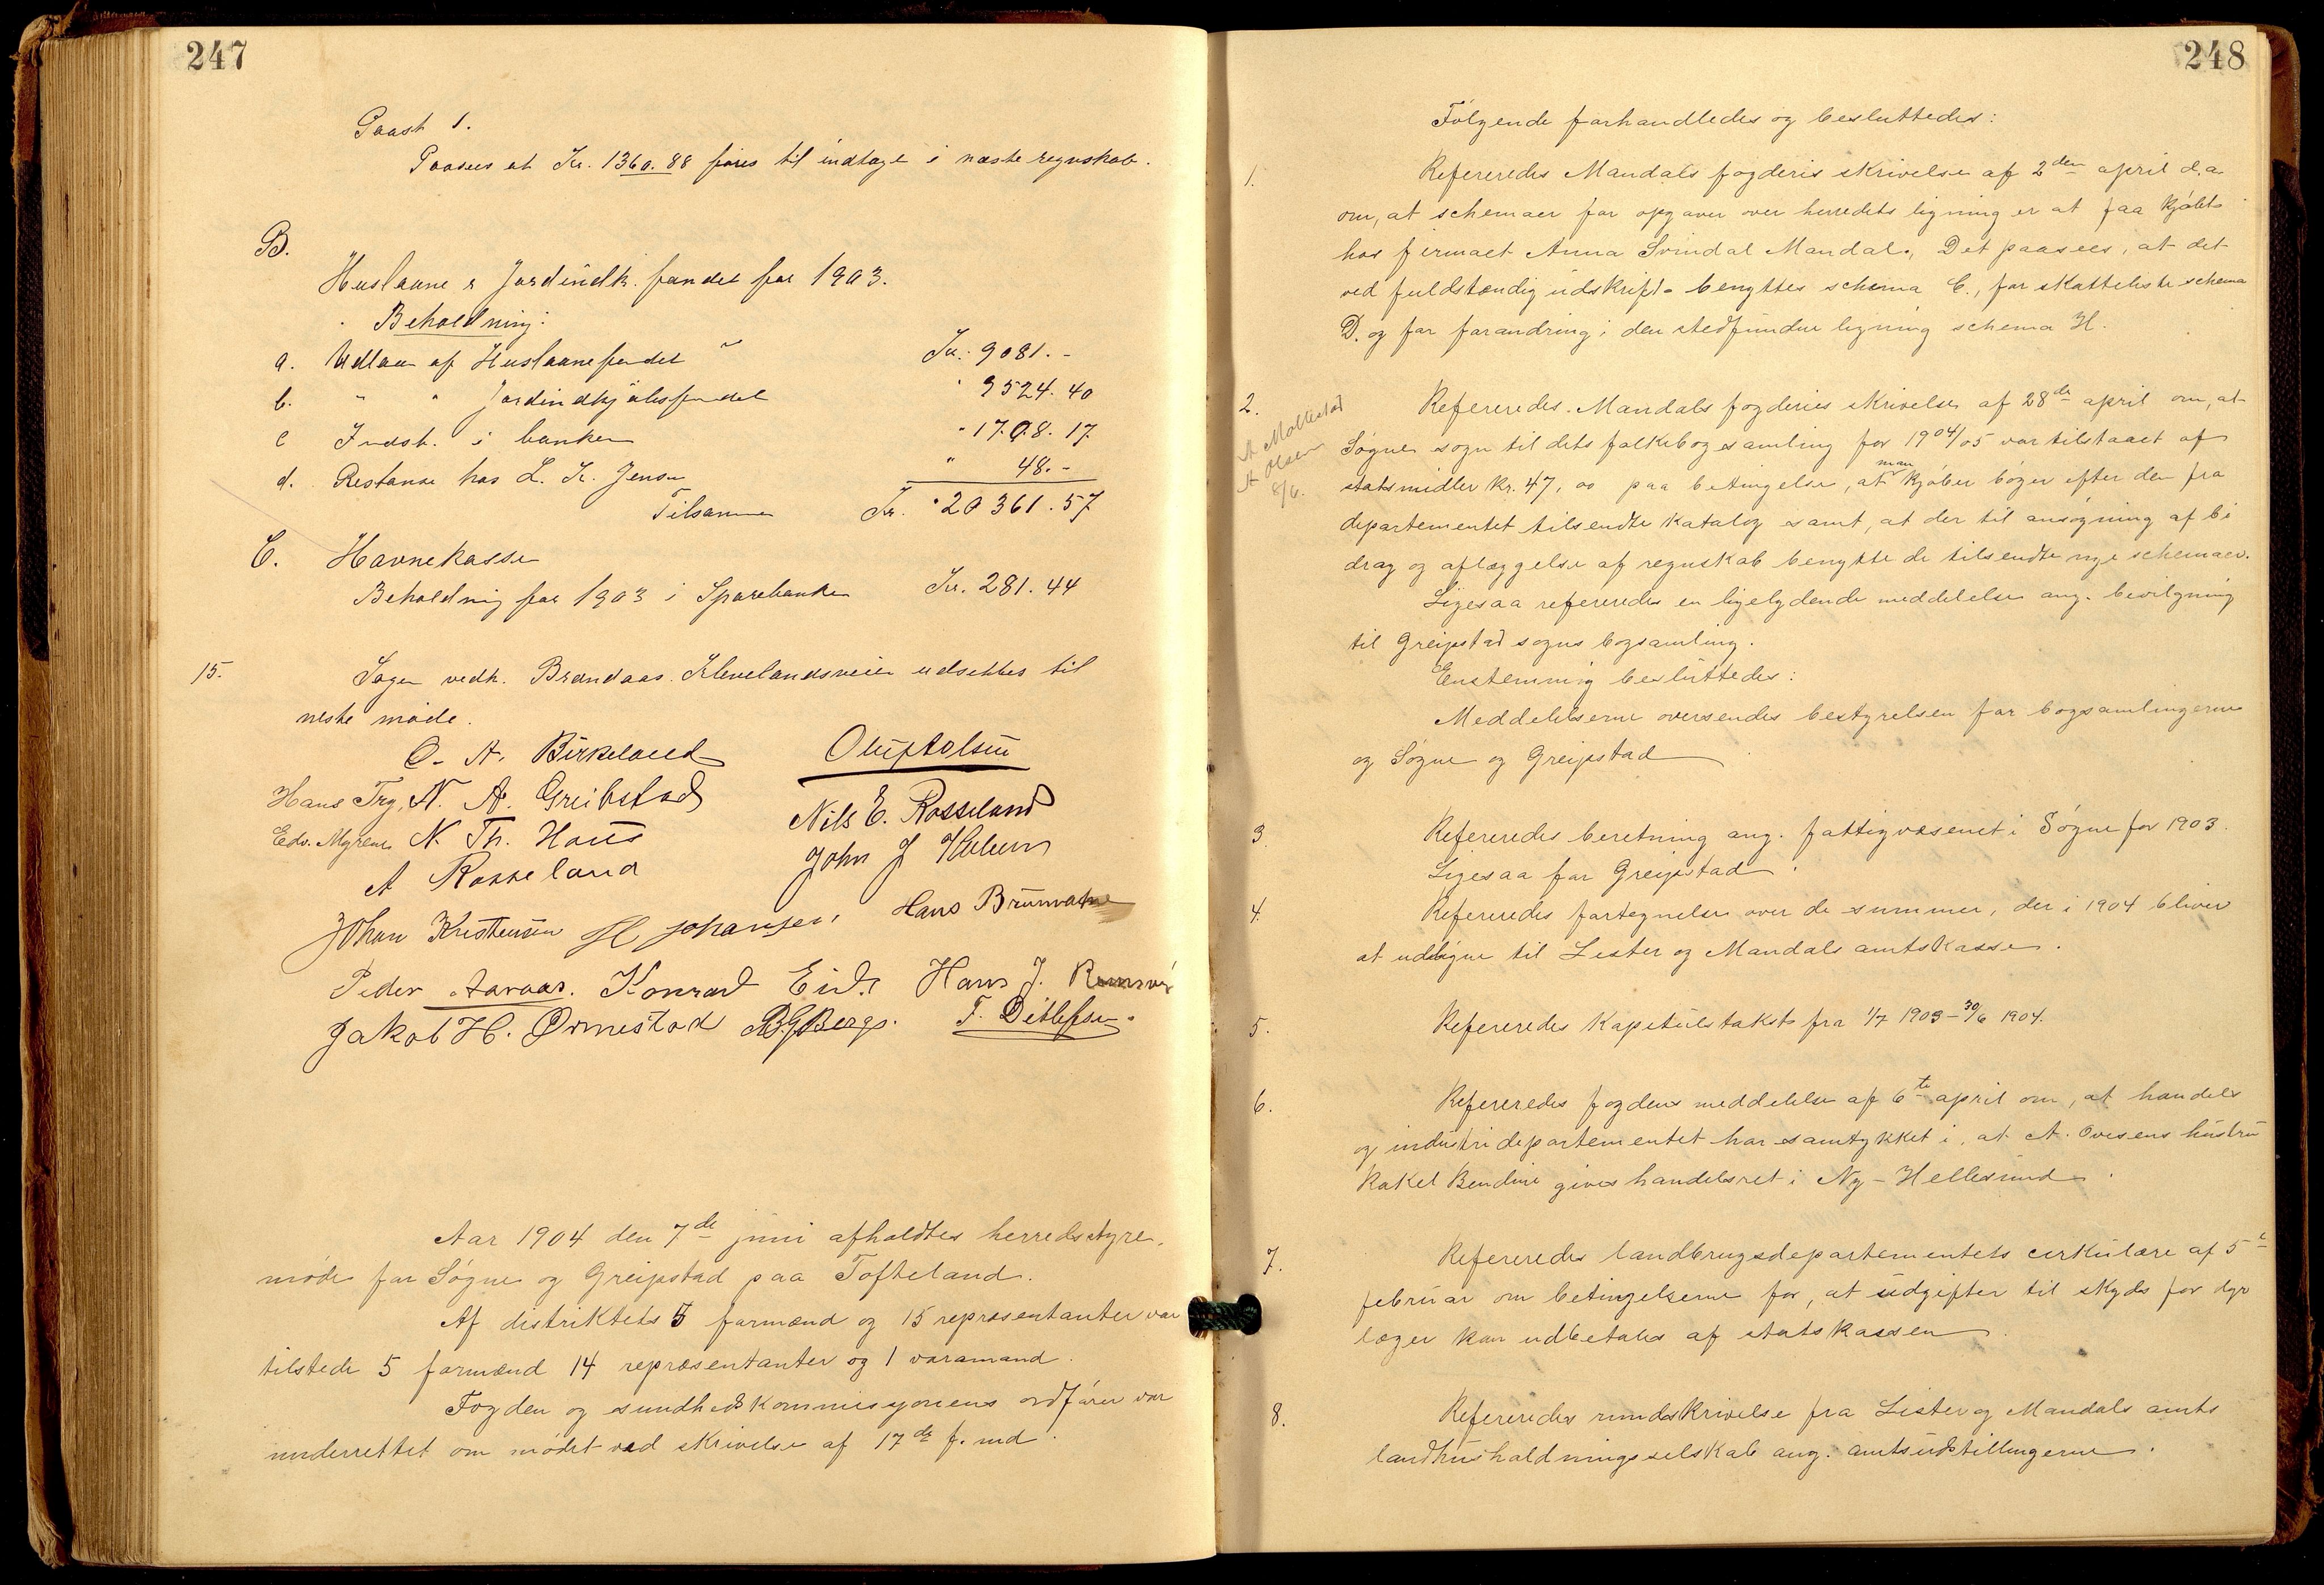 247
Paast 1.
Paasees at Kr. 1360.88 føres til indtægt i næste regnskab.
B.
Huslaane & Jordindk. fondet for 1903.
Beholdning:
a. Udlaan af Huslaanefondet Kr. 9081.-
b. " " Jordindkjøbsfondet " 9524.40
c Indst. i banken " 1708.17
d. Restanse hos L. Kr. Jensen " 48.-
Tilsammen Kr. 20361.57
C. Havnekassen
Beholdning for 1903 i Sparebanken Kr. 281.44
15. Sagen vedk. Brandaas. Klevelandsveien udsættes til
neste møde.
O. A. Birkeland Oluf Aolsen
Hans Try, N. A. Greibstad Nils E. Rosseland
Edv. Myren N. Th. Haus John J
A Rosseland
Johan Kristensen H Johansen Hans Brunvatne
Peder Aaraas. Konrad Eid. Hans J.
Jakob H. Ørmestad B G Berge. T. Ditlefsen.
Aar 1904 den 7de juni afholdtes herredsstyre-
møde for Søgne og Greipstad paa Tofteland.
Af distriktets 5 formænd og 15 repræsentanter var
tilstede 5 formænd 14 repræsentanter og 1 varamand.
Fogden og sundhedskommisjonens ordfører var
underrettet om mødet ved skrivelse af 17de f. md.
248
Følgende forhandledes og besluttedes:
1. Refereredes Mandals fogderis skrivelse af 2den april d.a.
om, at schemaer for opgaver over herredets ligning er at faa kjøbt
hos firmaet Anna Svindal Mandal. Det paasees, at det
ved fuldstændig udskrift benyttes schema C., for skatteliste schema
D. og for forandring i den stedfundne ligning schema H.
2. Refereredes Mandals fogderies skrivelse af 28de april om, at
A Møllestad
A Olsen
8/6.
Søgne sogn til dets folkebogsamling for 1904/05 var tilstaaet af
statsmidler kr. 47,00 paa betingelse, at man kjøber bøger efter den fra
departementet tilsendte katalog samt, at der til ansøgning af bi
drag og aflæggelse af regnskab benytte de tilsendte nye schemaer.
Ligesaa refereredes en ligelydende meddelelse ang. bevilgning
til Greipstad sogns bogsamling.
Enstemmig besluttedes:
Meddelelserne oversendes bestyrelsen for bogsamlingerne
og Søgne og Greipstad
3. Refereredes beretning ang. fattigvæsenet i Søgne for 1903.
Ligesaa for Greipstad.
4. Refereredes fortegnelse over de summer, der i 1904 bliver
at udligne til Lister og Mandals amtskasse.
5. Refereredes Kapitulstakst fra 1/7 1903-30/6 1904.
6. Refereredes fogdens meddelelse af 6te april om, at handels
og industridepartementet har samtykket i, at A. Ovesens hustru
Rakel Bendine gives handelsret i Ny-Hellesund.
7. Refereredes landbrugsdepartementets cirkulære af 5te
februar om betingelserne for, at udgifter til skyds for dyr
læger kan udbetales af statskassen.
8. Refereredes rundskrivelse fra Lister og Mandals amts
landhusholdningsselskab ang. amtsudstillingerne.